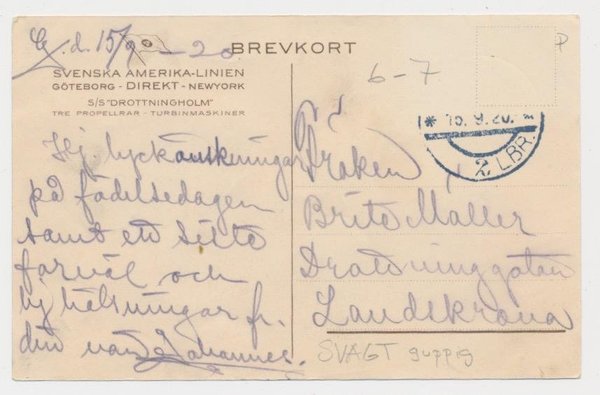 Gbg. d. 15/9 - 20
BREVKORT
SVENSKA AMERIKA-LINIEN
GÖTEBORG - DIREKT - NEWYORK
S/S "DROTTNINGHOLM"
TRE PROPELLRAR - TURBINMASKINER
Hej. lyckönskningar
på födelsedagen
samt ett sista
farväl och
hälsningar fr.
din vän Johannes.
6-7
P
* 15.9.20.
2 LBR.
Fröken
Brita Maller
Drottninggatan
Landskrona
SVAGT guppig